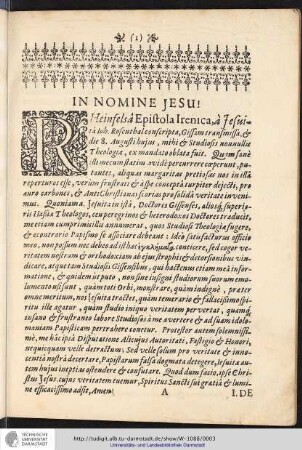 (1)
IN NOMINE JESU!
RHeinfelsâ Epistola Irenica, à Jesui-
tâ Joh. Rosenthal conscripta, Gissam transmissa, &
die 8. Augusti hujus, mihi & Studiosis nonnullis
Theologiæ, ex mandato oblata fuit. Quum sanè
illi mecum statim avidè percurrere coeperunt, pu-
tantes, aliquas margaritas pretiosas nos in illâ
reperturos esse, verùm frustrati & à spe conceptâ turpiter dejecti, pro
auro carbones, & AntiChristianas scorias pro solidâ veritate inveni-
mus. Quoniam a. Jesuita in istâ, Doctores Gissenses, aliosq; superio-
ris Hassiæ Theologos, ceu peregrinos & heterodoxos Doctores traducit,
me etiam cumprimis illis annumerat, quos Studiosi Theologiæ fugere,
& ex auctorio Patrum se asciscere debeant: Ideò satisfacturus officio
meo, non possum nec debeo ad ista hac contiscere, sed coger ve-
ritatem nostram & orthodoxiam ab ejus strophis & detorsionibus vin-
dicare, atque tam Studiosis Gissensibus, qui hactenus etiam meâ infor-
matione, & quidem ut puto, non sine insigni studiorum suorum emo-
lumento usi sunt, quàm toti Orbi, monstrare, quàm indignè, præter
omne meritum, nos Jesuita tractet, quàm temerario & fallacissimo spi-
ritu ille agatur, quàm studio iniquo veritatem pervertat, quamq;
insano & frustraneo labore Studiosos à me avertere & ad suam idolo-
maniam Papisticam pertrahere conetur. Protestor autem solennissi-
mè, me hâc ipsâ Disputatione Alicujus Autoritati, Fastigio & Honori,
nequicquam velle detractum; Sed velle solùm pro veritate & inno-
centiâ nostrâ decertare, Papistarum falsa dogmata detegere, Jesuitæ au-
tem hujus ineptias ostendere & confutare. Quod dum facio, ipse Chri-
stus Jesus, cujus veritatem tuemur, Spiritus Sancti sui gratiâ & lumi-
ne efficacissimo adsit, Amen!
A
I. DE
TECHNISCHE
UNIVERSITÄT
DARMSTADT
http://tudigit.ulb.tu-darmstadt.de/show/W-1088/0003
Universitäts- und Landesbibliothek Darmstadt